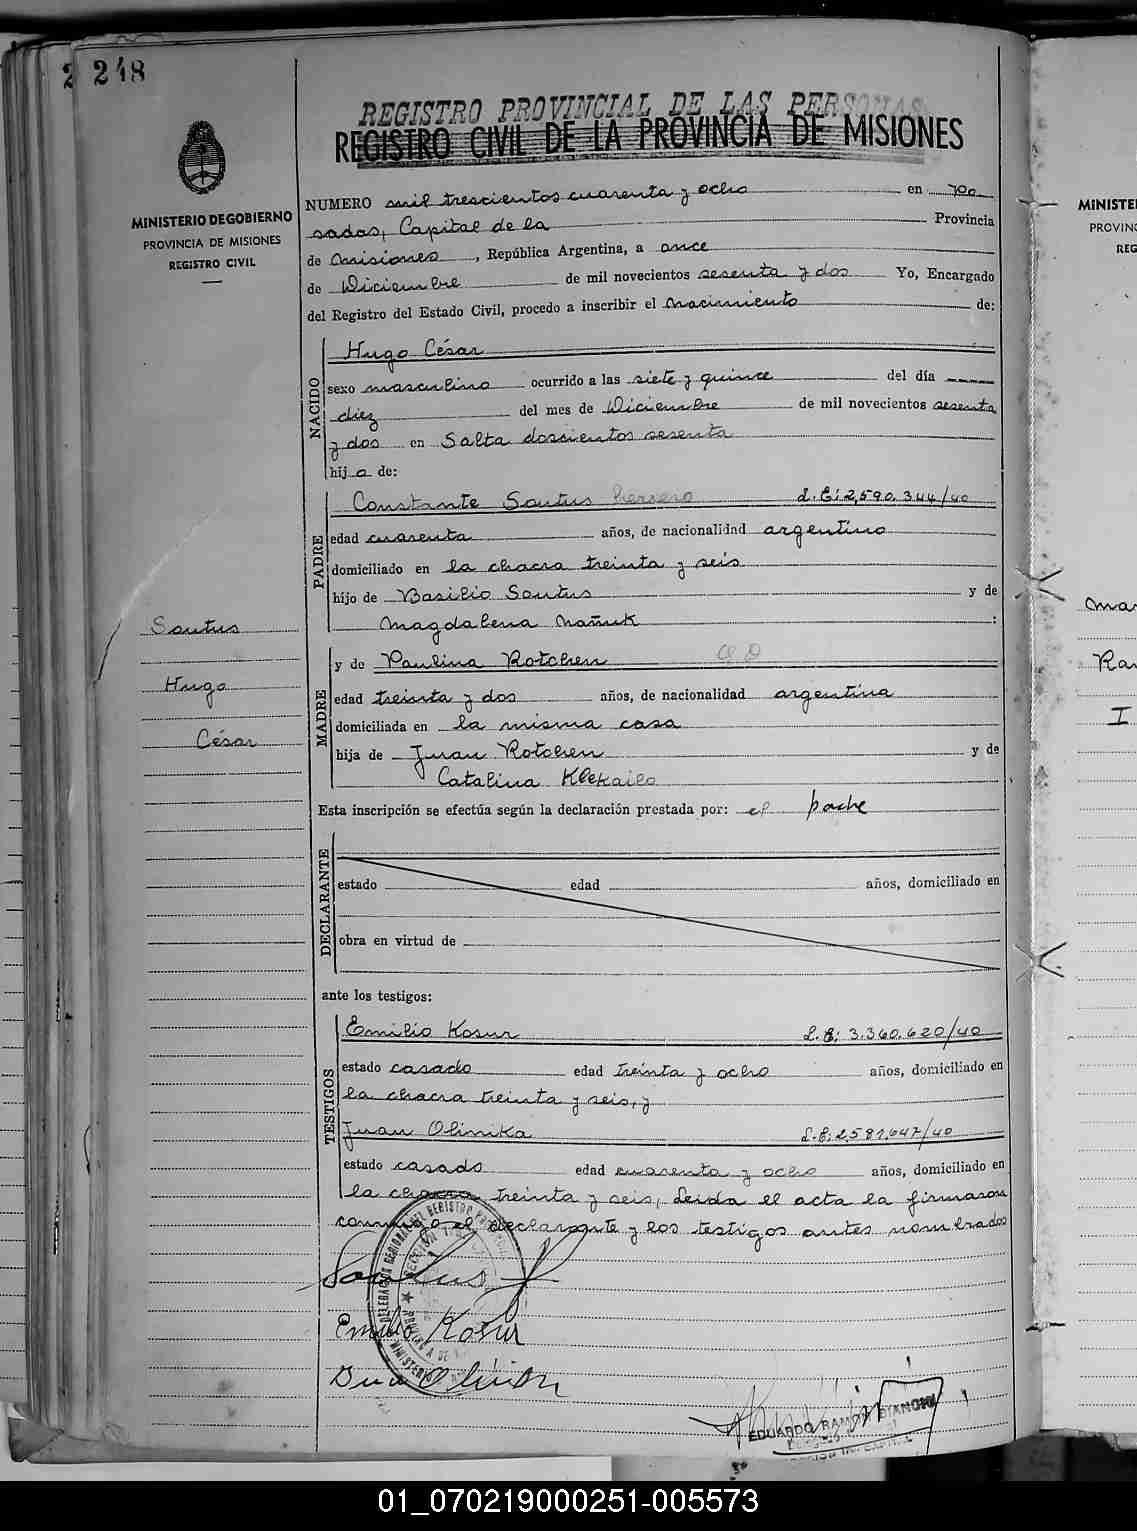 248
REGISTRO PROVINCIAL DE LAS PERSONAS
REGISTRO CIVIL DE LA PROVINCIA DE MISIONES
MINISTERIO DE GOBIERNO
PROVINCIA DE MISIONES
REGISTRO CIVIL
NUMERO mil trescientos cuarenta y ocho en Po
sadas, Capital de la Provincia
de Misiones, República Argentina, a once
de Diciembre de mil novecientos sesenta y dos Yo, Encargado
del Registro del Estado Civil, procedo a inscribir el nacimiento de:
NACIDO
Hugo César
sexo masculino ocurrido a las siete y quince del día
diez del mes de Diciembre de mil novecientos sesenta
y dos en Salta doscientos sesenta
hij o de:
PADRE
Constante Soutus herrero L.E: 2,590.344/40
edad cuarenta años, de nacionalidad argentino
domiciliado en la chacra treinta y seis
hijo de Basilio Soutus y de
Magdalena Nañuk
Soutus
Hugo
César
MADRE
y de Paulina Rotchen
edad treinta y dos años, de nacionalidad argentina
domiciliada en la misma casa
hija de Juan Rotchen y de
Catalina Klekailo
Esta inscripción se efectúa según la declaración prestada por: el padre
DECLARANTE
estado edad años, domiciliado en
obra en virtud de
ante los testigos:
TESTIGOS
Emilio Kosur L.E: 3.360.620/40
estado casado edad treinta y ocho años, domiciliado en
la chacra treinta y seis, y
Juan Olinika L.E: 2,581.647/40
estado casado edad cuarenta y ocho años, domiciliado en
la chacra treinta y seis, Leida el acta la firmaron
conmigo el declarante y los testigos antes nombrados
Soutus
Emilio Kosur
EDUARDO RAMON BIANCHI
01_070219000251-005573